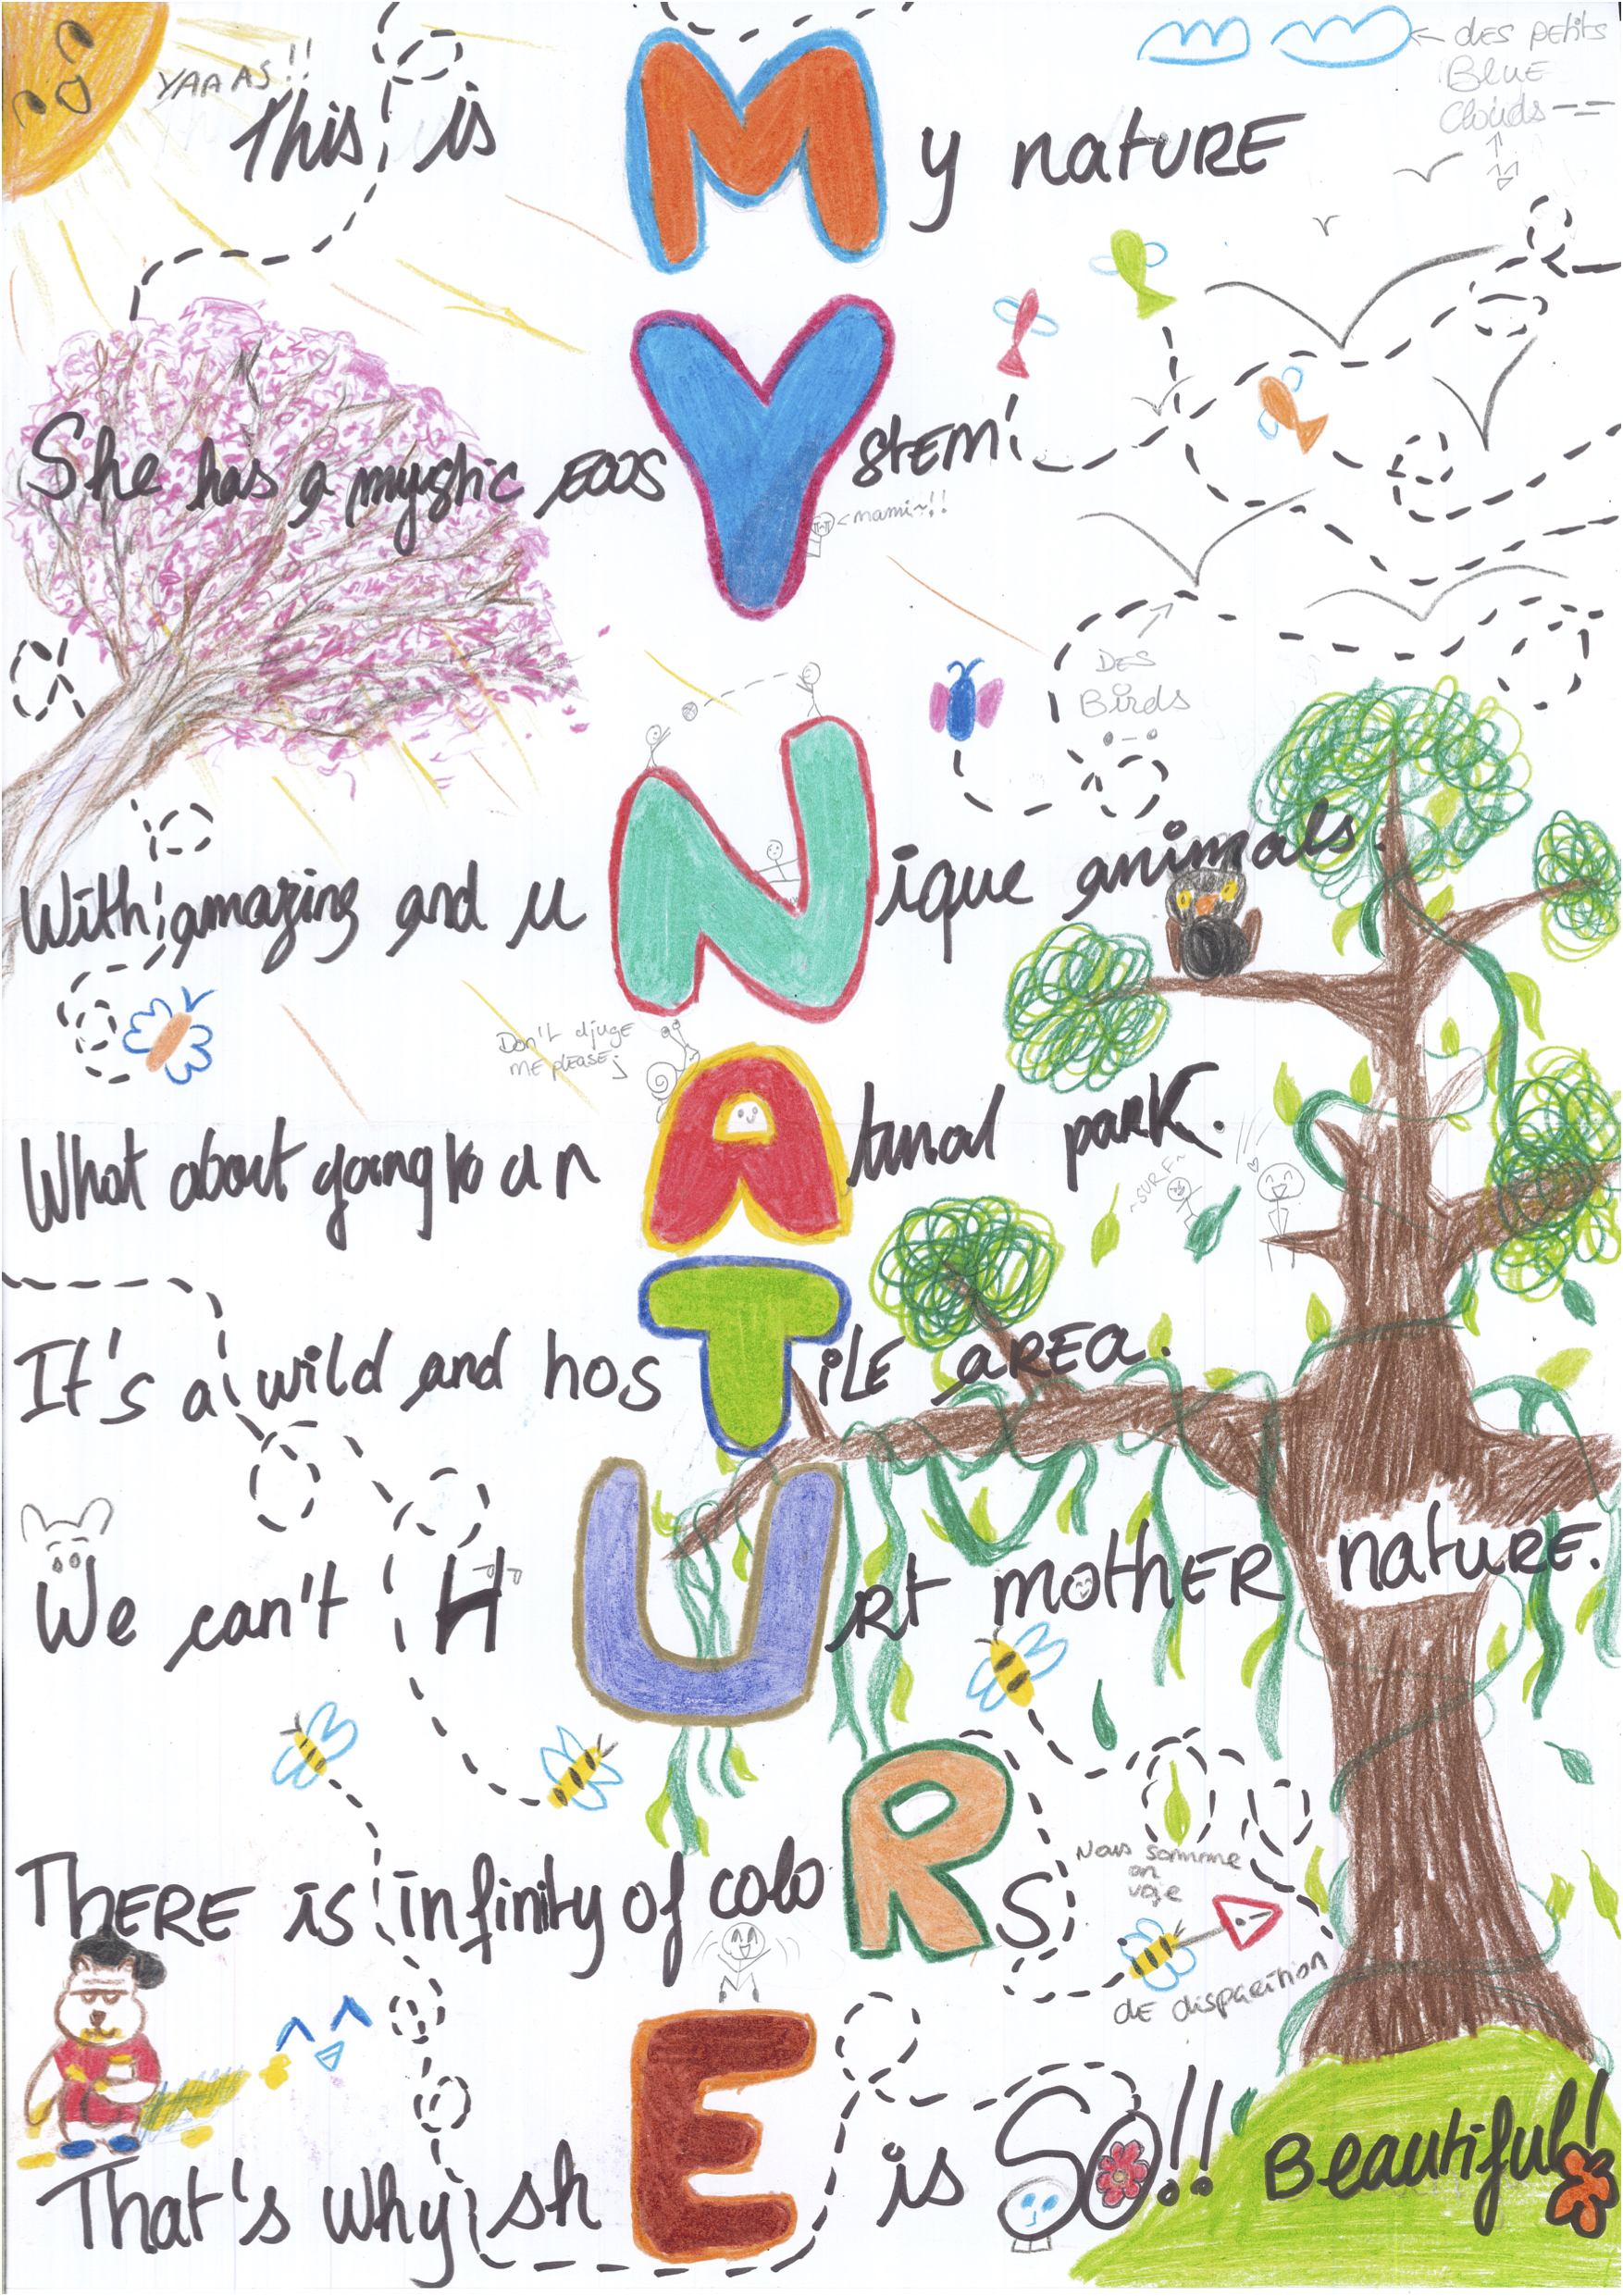 des petits
Blue
Clouds
YAAAS!!
This is My nature
She has a mystic ecosYstem
mami~!!
DES
Birds
With amazing and uNique animals.
Don't djuge
ME please;
What about going to a nAtural park.
~SURF~
It's a wild and hosTile area.
We can't HUrt mother nature.
There is infinity of coloRs
Nous somme
en
voie
de disparition
That's why shE is So!! Beautiful!